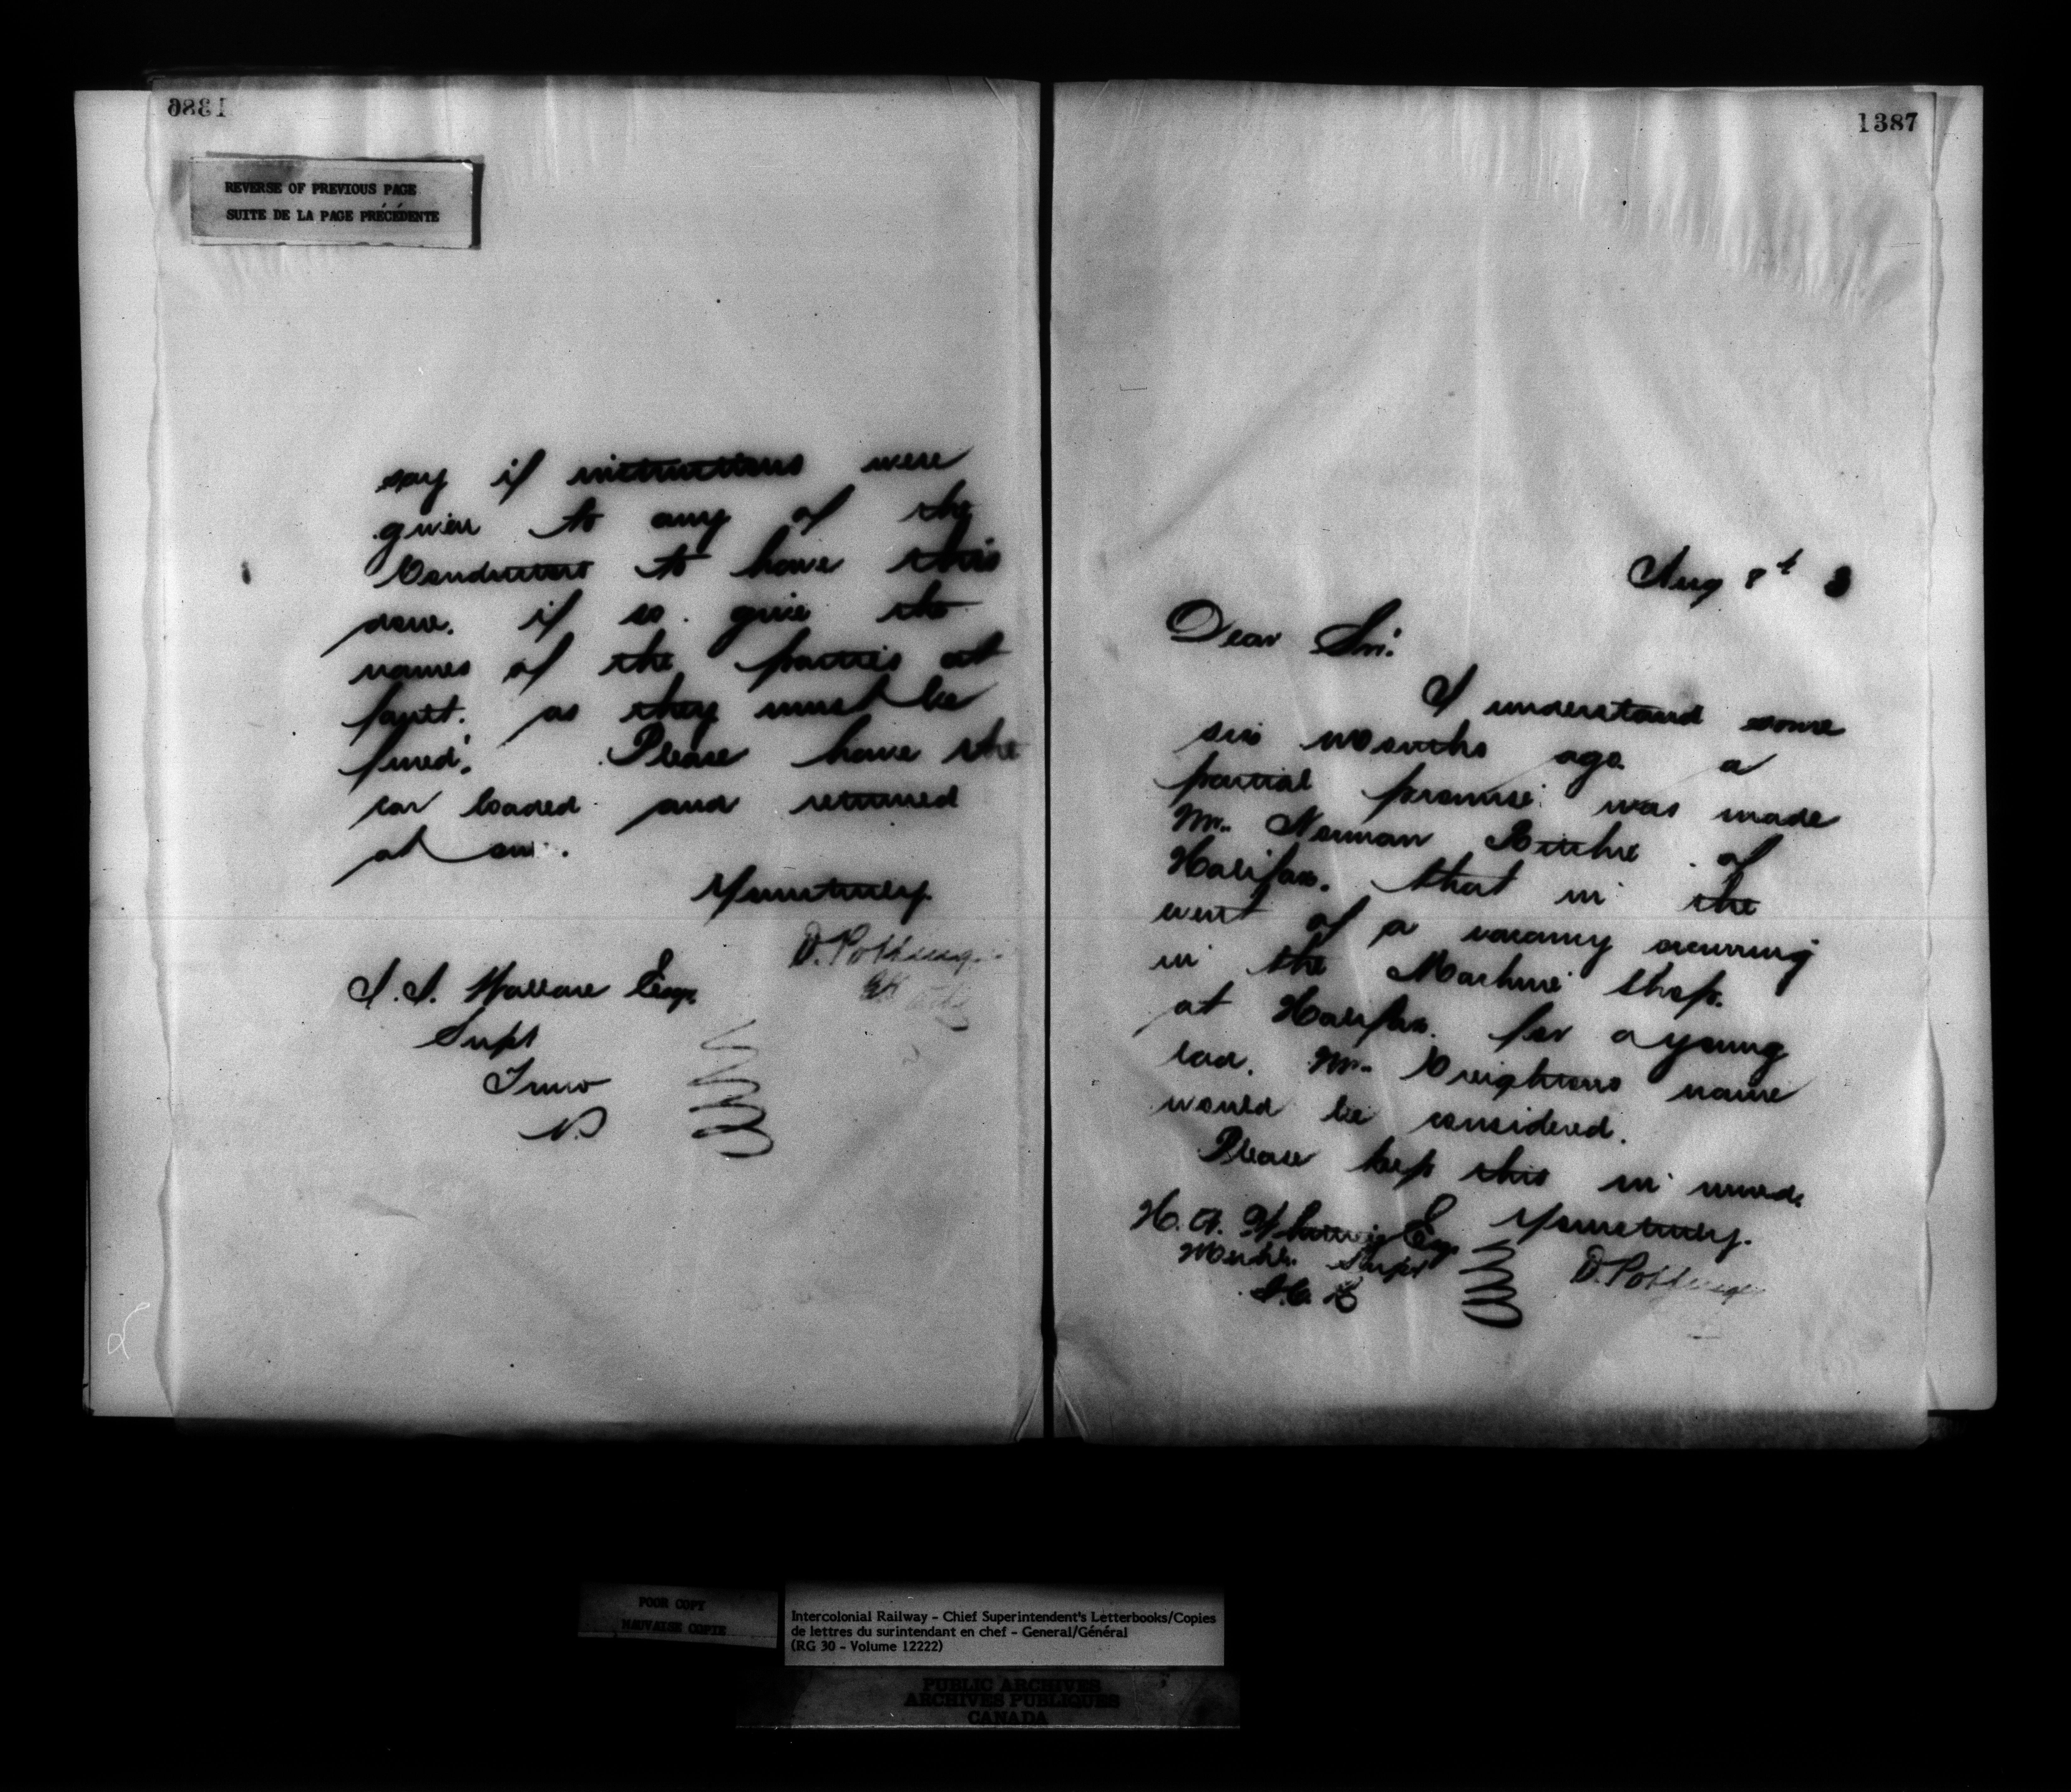 1386
REVERSE OF PREVIOUS PAGE
SUITE DE LA PAGE PRÉCÉDENTE
say if instructions were
given to any of the
Conductors to have this
done. if so. give the
names of the parties at
fault. as they must be
fined. Please have the
car loaded and returned
at
Yours truly.
D. Pottinger
J. J. Wallace Esq
Supt
Truro
N.S
1387
Aug 8th 3
Dear Sir.
I understand some
six months ago a
partial promise was made
Mr. Norman Ritchie of
Halifax. that in the
event of a vacancy occurring
in the Machine Shop.
at Halifax. for a young
lad. Mr. Creightons name
would be considered.
Please keep this in mind.
H. A. Whitney Esq Yours truly.
Mechl. Supt D. Pottinger
I.C.R
POOR COPY
MAUVAISE COPIE
Intercolonial Railway - Chief Superintendent's Letterbooks/Copies
de lettres du surintendant en chef - General/Général
(RG 30 - Volume 12222)
PUBLIC ARCHIVES
ARCHIVES PUBLIQUES
CANADA